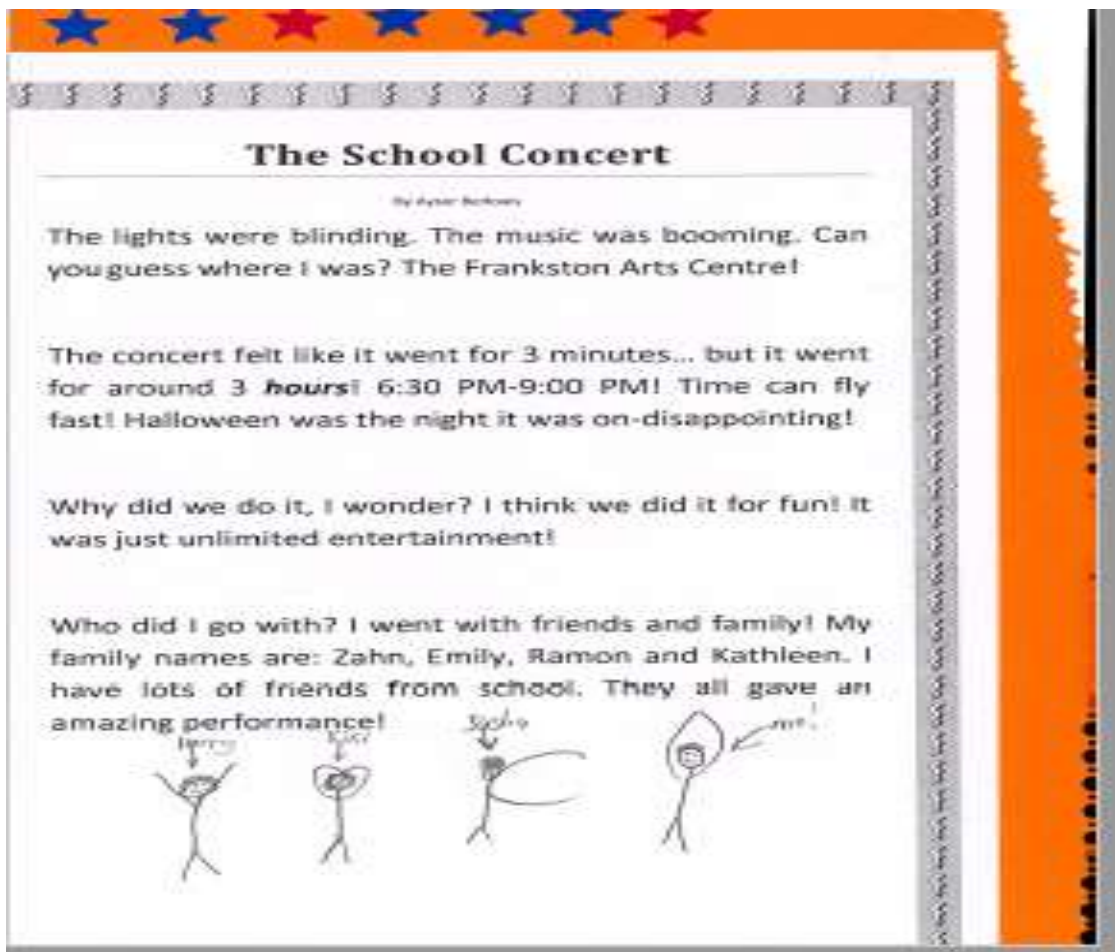 The School Concert
By
The lights were blinding. The music was booming. Can
you guess where I was? The Frankston Arts Centre!
The concert felt like it went for 3 minutes... but it went
for around 3 hours! 6:30 PM-9:00 PM! Time can fly
fast! Halloween was the night it was on-disappointing!
Why did we do it, I wonder? I think we did it for fun! It
was just unlimited entertainment!
Who did I go with? I went with friends and family! My
family names are: Zahn, Emily, Ramon and Kathleen. I
have lots of friends from school. They all gave an
amazing performance!
me!